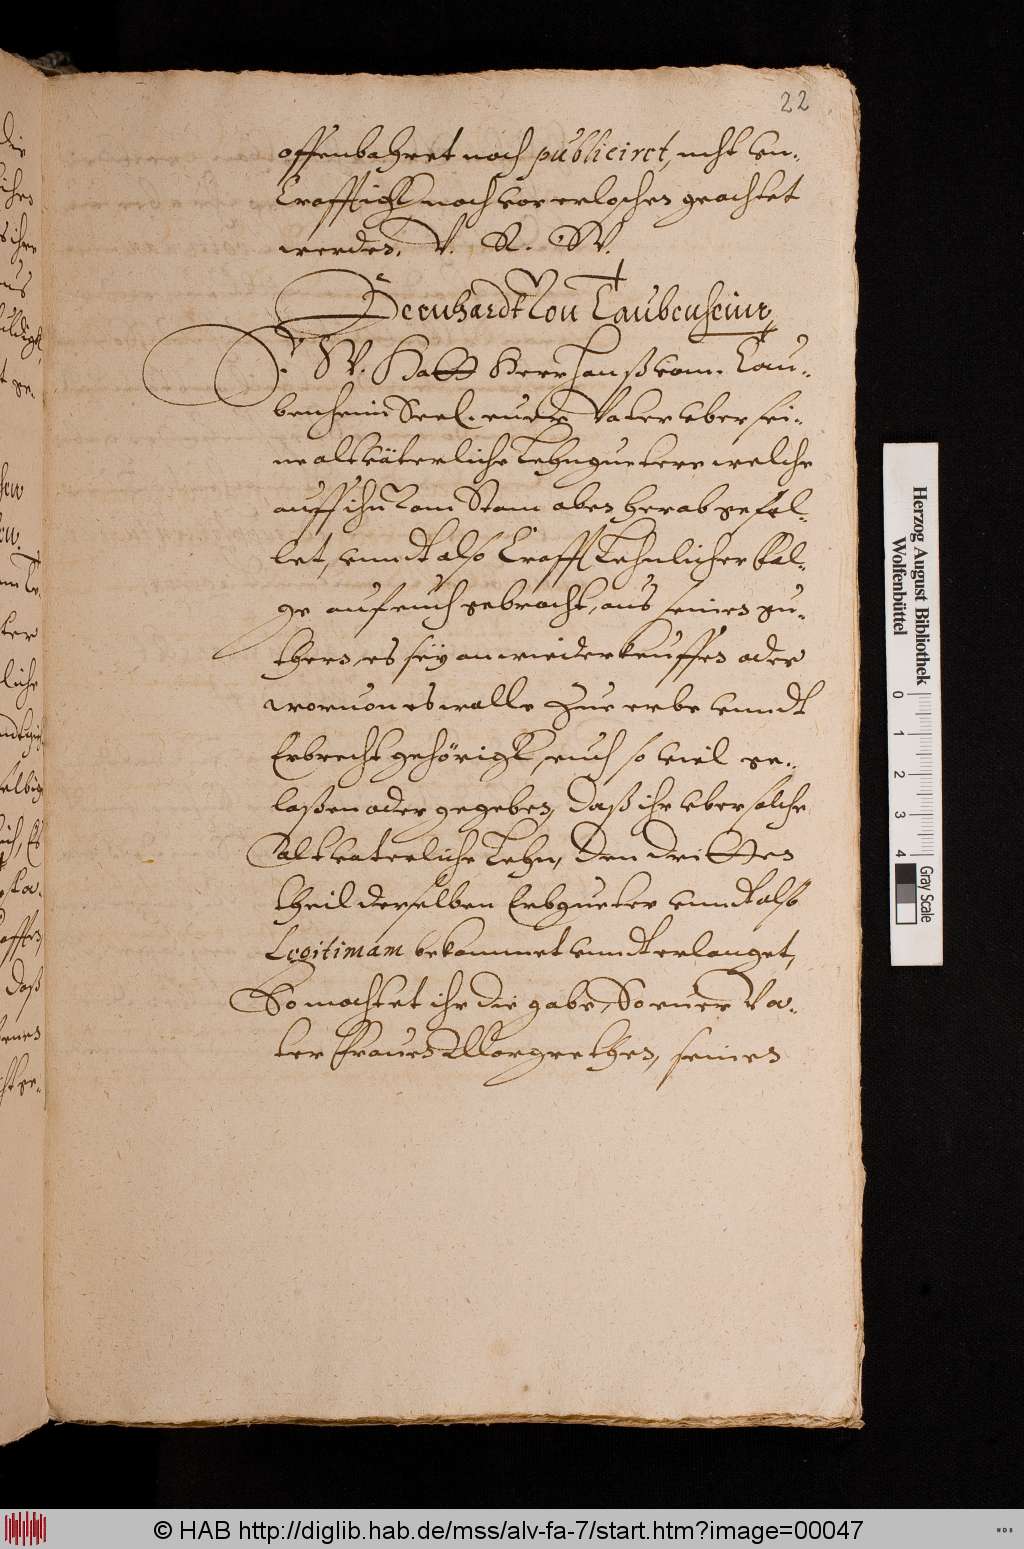 22
offenbahret noch publiciret, nicht vn-
krefftigk noch vor erloschen geachtet
werden. V. R. W.
Bernhardt von Taubenheim
V. W. Hatt Herr Hanß vom Tau-
benheim Seel. euer Vater vber sei-
ne altväterliche Lehngueter welche
auff ihn vom Stam oben herab gefel-
let, vnndt also krafft Lehnlicher fol-
ge auf euch gebracht, aus seinen gu-
thern, es sey an wiederkeuffen oder
woruon es wolle zue erbe vnndt
Erbrecht gehörigk, euch so viel ge-
laßen oder gegeben, daß ihr vber solche
altvaterliche Lehn, den dritten
theil derselben Erbgueter vnndt also
Legitimam bekommet vnndt erlanget,
So möchtet ihr die gabe, So euer Va-
ter Frauen Margrethen, seinen
Herzog August Bibliothek
Wolfenbüttel
0 1 2 3 4
Gray Scale
© HAB http://diglib.hab.de/mss/alv-fa-7/start.htm?image=00047